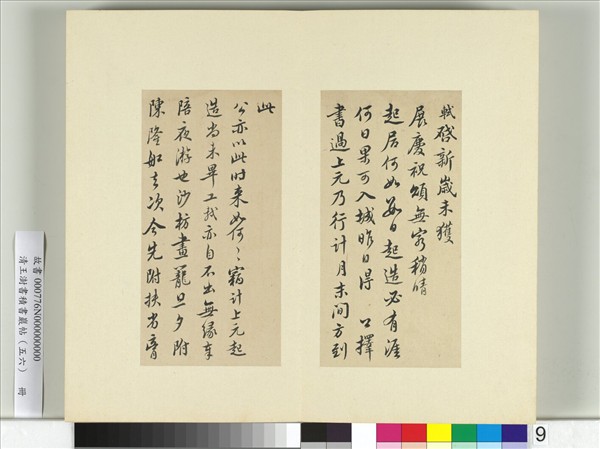 軾啓新歲未獲
展慶祝頌無窮稍晴
起居何如數日起造必有涯
何日果可入城昨日得 公擇
書過上元乃行計月末間方到
此
公亦以此时来如何〻竊計上元起
造尚未畢工軾亦自不出無緣奉
陪夜游也沙枋畫籠旦夕附
陳隆船去次今先附扶劣膏
故書 000776N000000000
清王澍書積書巖帖(五六) 冊
9